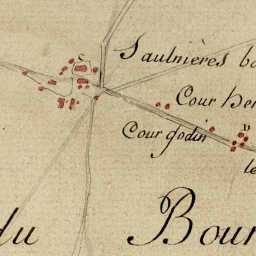 C
Saulnières
Cour
Cour godin
D
le
du Bour